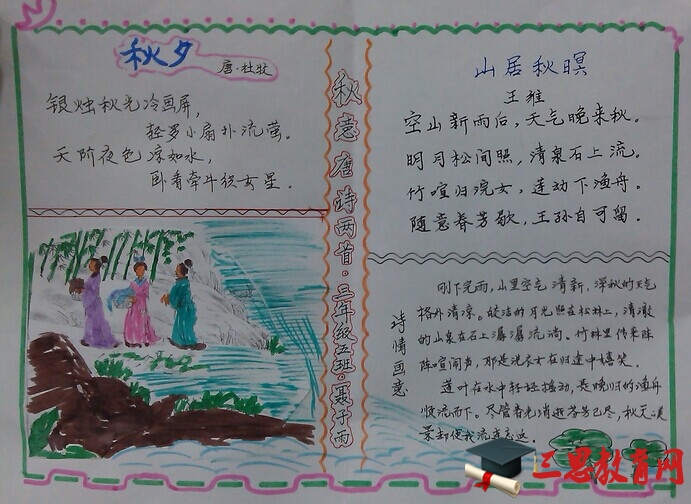 秋夕
唐·杜牧
银烛秋光冷画屏，
轻罗小扇扑流萤。
天阶夜色凉如水，
卧看牵牛织女星．
秋意唐诗两首·三年级五班·聂子雨
山居秋暝
王维
空山新雨后，天气晚来秋。
明月松间照，清泉石上流。
竹喧归浣女，莲动下渔舟。
随意春芳歇，王孙自可留．
诗情画意
刚下完雨，山里空气清新，深秋的天气
格外清凉。皎洁的月光照在松林上，清澈
的山泉在石上潺潺流淌。竹林里传来阵
阵喧闹声，那是洗衣女在归途中嬉笑．
莲叶在水中轻轻摇动，是晚归的渔舟
顺流而下。尽管春光消逝芳香已尽，秋天美
景却使我流连忘返。
三思教育网